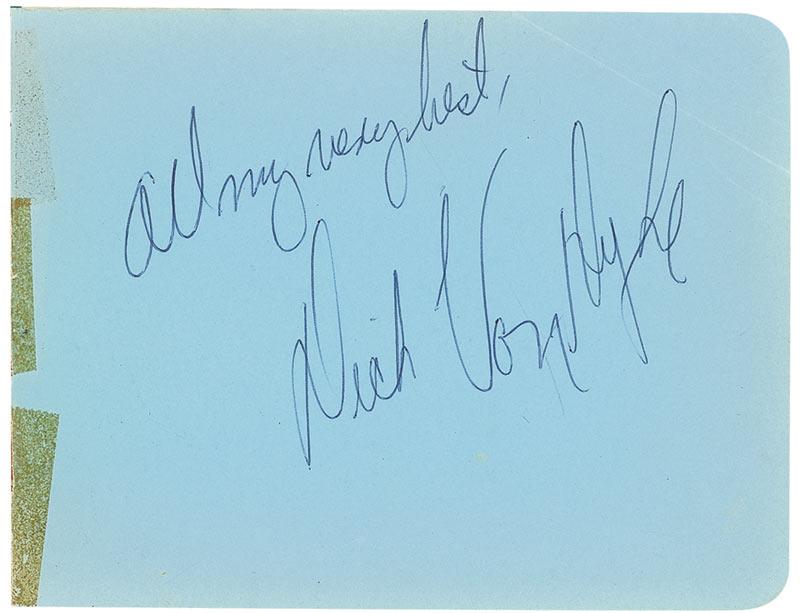 All my very best,
Dick Van Dyke